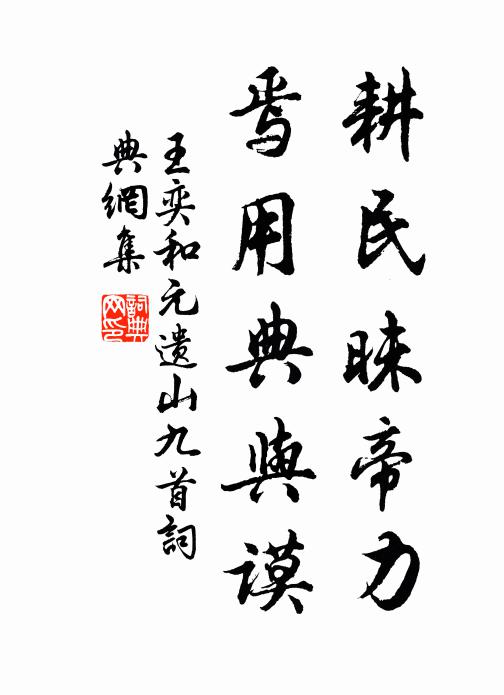 耕民昧帝力
焉用典與謨
王奕和元遺山九首詞
典網集
詞典网印